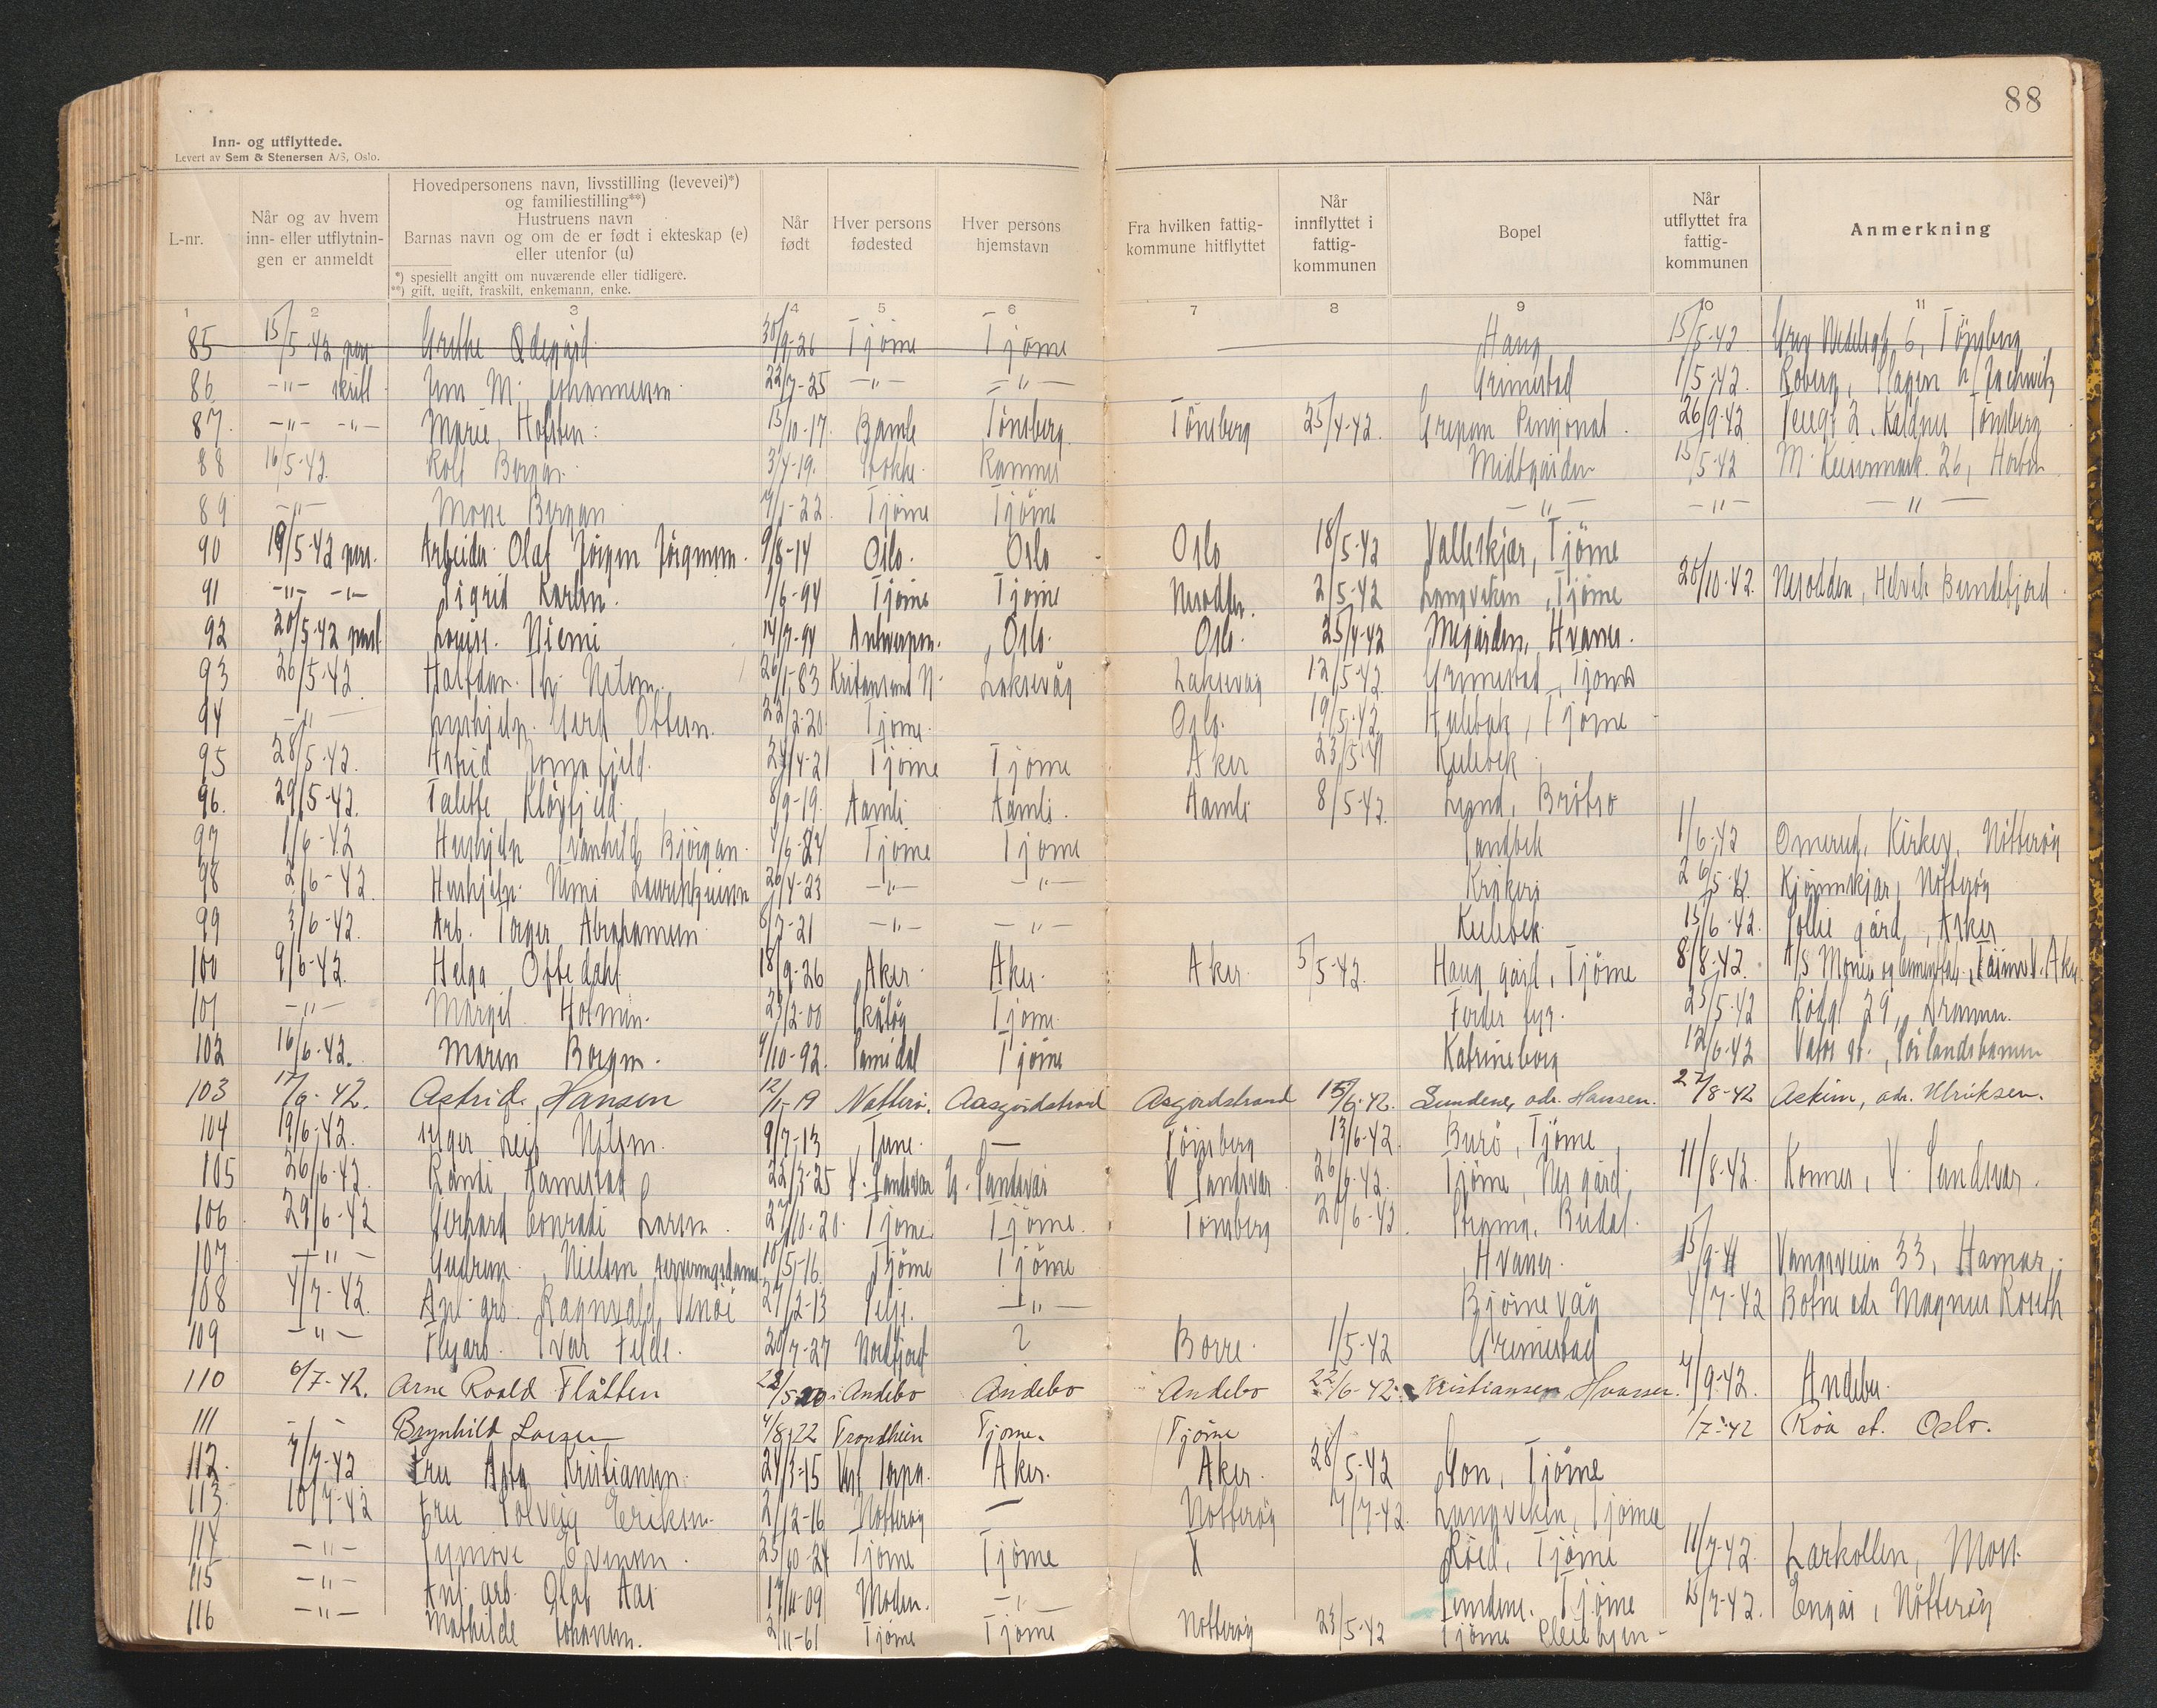 88
Inn- og utflyttede.
Levert av Sem & Stenersen A/S, Oslo.
L-nr. Når og av hvem inn- eller utflytnin-gen er anmeldt Hovedpersonens navn, livsstilling (levevei)*) og familiestilling**) Hustruens navn Barnas navn og om de er født i ekteskap (e) eller utenfor (u) *) spesiellt angitt om nuværende eller tidligere. **) gift, ugift, fraskilt, enkemann, enke. Når født Hver persons fødested Hver persons hjemstavn Fra hvilken fattig-kommune hitflyttet Når innflyttet i fattig-kommunen Bopel Når utflyttet fra fattig-kommunen Anmerkning
1 2 3 4 5 6 7 8 9 10 11
85 15/5-42 Grethe Ødegård 30/9-26 Tjøme Tjøme Haug 15/5-42 6, Tönsberg
86 -"- skrift. Jens M. Johannesen 22/7-25 -"- -"- Grimestad 1/5-42. Roberg, Slagen
87. -"- -"- Marie Holsten 15/10-17. Bamle Tønsberg Tönsberg 25/4-42. Grepan Pensjonat. 26/9-42 2. Kaldnes Tönsberg
88 16/5-42. Rolf Bergan. 3/4-19. Stokke Ramnes Midtgården 15/5-42 26, Horten
89 -"- Bergan 4/1-22. Tjöme Tjöme -"- -"- -"-
90 19/5-42 pers. Arbeider Olaf Jörgen Jörgensen. 9/8-14 Oslo. Oslo Oslo 18/5-42 Valleskjær, Tjöme
91 -"- -"- Sigrid Karlsen. 1/6-94 Tjöme Tjöme Nesodden. 2/5-42 Langviken, Tjöme 20/10-42. Nesodden, Helvik Bundefjord.
92 20/5-42 Louise Niemi 14/7-94 Antwerpen. Oslo. Oslo. 25/4-42 Megården, Hvaser.
93 26/5-42 Halfdan Th. Nilsen. 26/1-83 Kristiansund N. Laksevåg Laksevåg 12/5-42. Grimestad, Tjöme
94 -"- Gerd Ottesen. 22/2-20. Tjöme. Oslo. 19/5-42 Hulebak, Tjöme
95 28/5-42. Astrid 24/4-21 Tjöme Tjöme Aker 23/5-41 Kulebek
96. 29/5-42. Talette Kløvfjeld. 8/9-19. Aamli Aamli. Aamli 8/5-42. Lynd, Brötsö
97 1/6-42 Hushjelp Svanhild Bjørgan. 4/6-24 Tjöme Tjöme Sandbek 1/6-42 Omerud, Kirkev, Nötteröy
98 2/6-42. Hushjelp 20/4-23 -"- -"- Krukeri 26/5-42. Kjøpmskjær, Nötteröy
99 3/6-42. Arb. Torger Abrahamsen 8/7-21 -"- -"- Kulebek 15/6-42. Sollie gård, Asker
100 9/6-42. Helga Oftedahl 18/9-26 Aker. Aker. Aker. 5/5-42. Haug gård, Tjöme 8/8-42. A/S V. Aker.
101 -"- Margit Holmen. 23/2-00 Skåtöy Tjöme. Færder fyr. 23/5-42 29, Drammen.
102 16/6-42. Maren Borgen. 4/10-92. Tjöme Katrineborg 12/6-42 Vatos st., Sörlandsbanen
103 17/6-42. Astrid Hansen 12/1-19 Nøtterö. Aasgårdstrand Aasgårdstrand 15/6-42. Sundene, adr. Hansen. 27/8-42 Askim, adr. Ulriksen.
104 19/6-42. Leif Nilsen. 9/7-13 Tune. — Tönsberg 13/6-42. Burö, Tjöme
105 26/6-42. Randi Aamestad 22/3-25 Y. Sandsvær Y. Sandsvær Y Sandsvær 26/6-42. Tjöme, Nes gård. 11/8-42. Komnes, Y. Sandsvær.
106. 29/6-42 Gerhard Conradi Larsen. 27/10-20. Tjöme. Tjöme. Tönsberg 20/6-42. Budal.
107. -"- Gudrun Nielsen serveringsdame 10/5-16. Tjöme Tjöme Hvaser. 15/9-41 Vangsveien 33, Hamar.
108 4/7-42. Anl. arb. Ragnvald 27/2-13 Selje. -"- Bjørnevåg 4/7-42 Botne adr Magnus
109 -"- Ivar Felde. 20/7-27 Nordfjord ? Borre. 1/5-42 Grimestad
110 6/7-42. Arne Roald Flåtten 28/5 20. Andebo Andebo Andebo 22/6-42. Kristiansen Hvasser. 4/9-42. Andebu.
111 -"- Brynhild Larsen 4/8-22 Trondheim Tjøme. Tjøme 1/7-42 Röa st. Oslo.
112. 7/7-42 Fru Asta Kristiansen. 24/3-15 Aker. Aker. 28/5-42 Mon, Tjöme
113. 10/7-42 Fru Solveig Eriksen. 2/12-16 Nötteröy — Nötteröy 7/7-42. Langviken, Tjöme
114 -"- Synnöve Evensen. 23/10-24 Tjöme Tjöme X Röed, Tjöme 11/7-42. Larkollen, Moss.
115 -"- Anl. arb. Olaf Aas 17/11-09 Modum. -"- Sundene. Tjöme 15/7-42. Engö, Nötteröy
116 -"- Mathilde Johansen. 2/11-61 Tjöme Tjöme Nötteröy 23/5-42 Tjöme